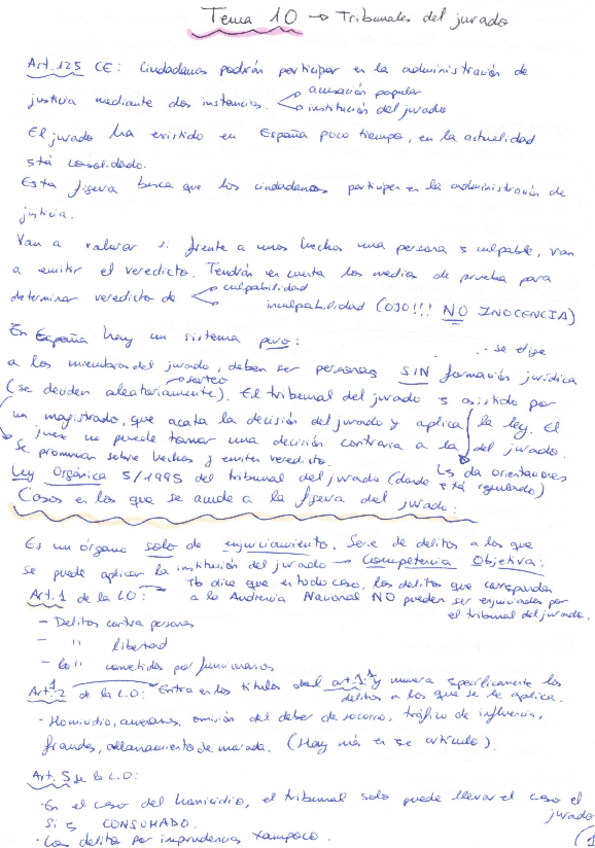 Tema 10 → Tribunales del jurado
Art. 125 CE: Ciudadanos podrán participar en la administración de
justicia mediante dos instancias. acusación popular
institución del jurado
El jurado ha existido en España poco tiempo, en la actualidad
stá consolidado.
Esta figura busca que los ciudadanos participen en la administración de
justicia.
Van a valorar si frente a unos hechos una persona s culpable, van
a emitir el veredicto. Tendrán en cuenta los medios de prueba para
determinar veredicto de culpabilidad
inculpabilidad (OJO!!! NO INOCENCIA)
En España hay un sistema puro: se elige
a los miembros del jurado, deben ser personas SIN formación jurídica
(se deciden aleatoriamente). El tribunal del jurado s asistido por
→ sorteo
un magistrado, que acata la decisión del jurado y aplica la ley. El
juez no puede tomar una decisión contraria a la del jurado.
Se pronuncian sobre hechos y emiten veredicto. Ls da orientaciones
Ley Orgánica 5/1995 del tribunal del jurado (donde stá regulado)
Casos en los que se acude a la figura del jurado:
Es un órgano solo de enjuiciamiento. Serie de delitos a los que
se puede aplicar la institución del jurado → Competencia Objetiva:
Art. 1 de la LO: Tb dice que en todo caso, los delitos que correspondan
a la Audiencia Nacional NO pueden ser enjuiciados por
el tribunal del jurado.
- Delitos contra personas
- " " libertad
- " cometidos por funcionarios
Art. 1.2 de la L.O: Entra en los títulos del art. 1.1 y numera específicamente los
delitos a los que se le aplica.
- Homicidio, amenazas, omisión del deber de socorro, tráfico de influencia,
fraudes, allanamiento de morada. (Hay más en se artículo).
Art. 5 de la L.O:
- En el caso del homicidio, el tribunal solo puede llevar el caso el
jurado
si s CONSUMADO.
- Los delitos por imprudencias tampoco.
1